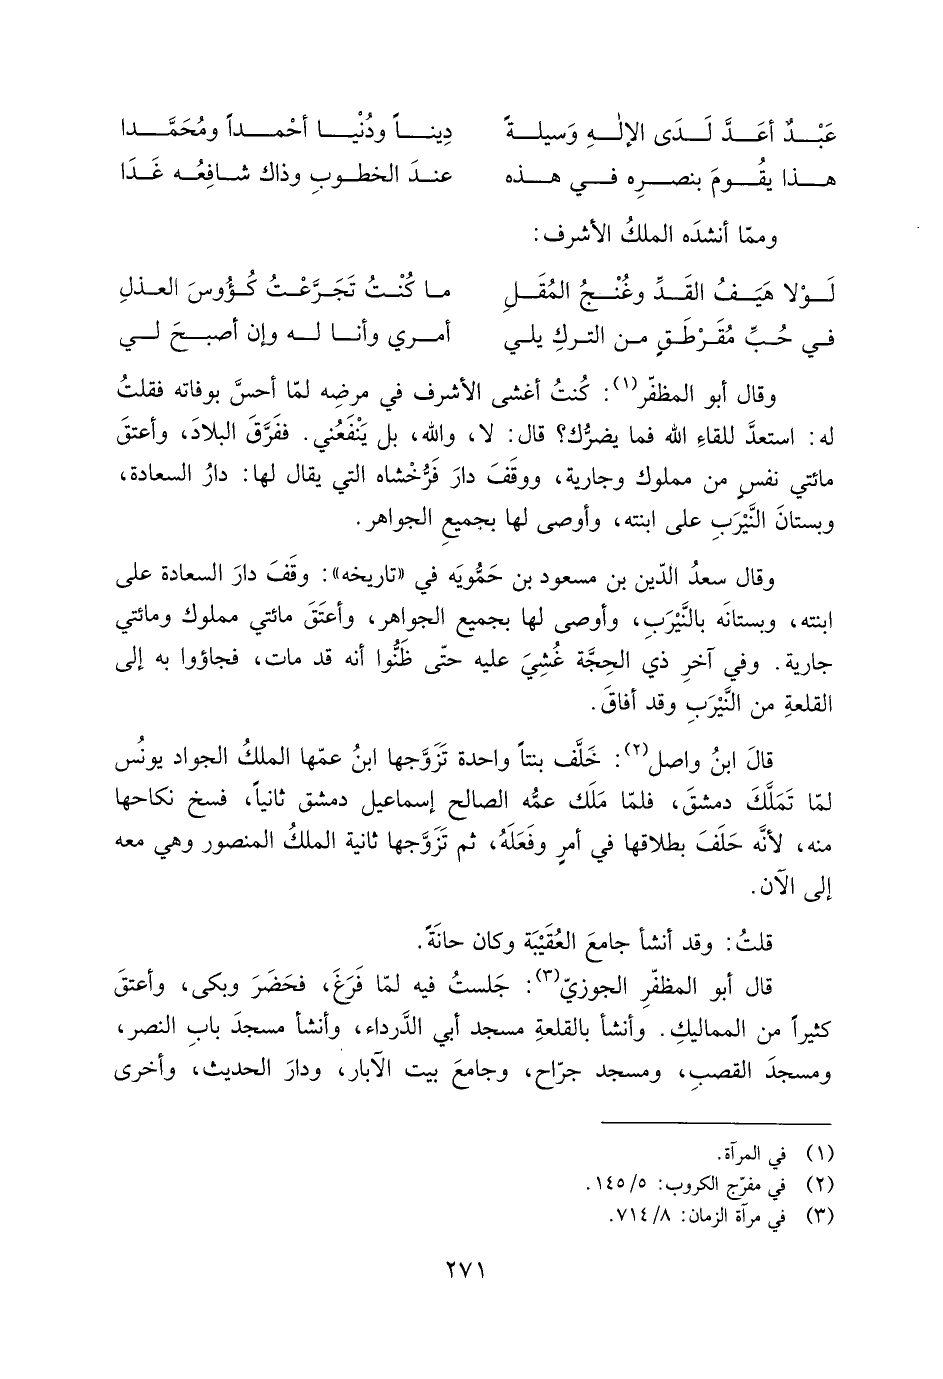 عَبْـدٌ أعَـدَّ لَـدَى الإلٰـهِ وَسيلـةً دِينـاً ودُنْيـا أحْمـداً ومُحَمَّـدا
هـذا يقُـومَ بنصـرِه فـي هـذه عنـدَ الخطـوبِ وذاك شـافِعُـه غَـدَا
وممّا أنشدَه الملكُ الأشرف:
لَـوْلا هَيَـفُ القَـدِّ وغُنْـجُ المُقَـلِ مـا كُنْـتُ تَجَـرَّعْـتُ كُـؤوسَ العـذلِ
فـي حُـبِّ مُقَـرْطَـقٍ مـن التـركِ يلي أمـري وأنـا لـه وإن أصبـحَ لـي
وقال أبو المظفّر(١): كُنتُ أغشى الأشرف في مرضِه لمّا أحسَّ بوفاته فقلتُ
له: استعدَّ للقاءِ الله فما يضرُّك؟ قال: لا، والله، بل يَنْفَعُني. ففَرَّقَ البلادَ، وأعتقَ
مائتي نفسٍ من مملوك وجارية، ووقَفَ دارَ فَرُّخْشاه التي يقال لها: دارُ السعادة،
وبستانَ النَّيْرَبِ على ابنته، وأوصى لها بجميعِ الجواهر.
وقال سعدُ الدّين بن مسعود بن حَمُّويَه في «تاريخه»: وقَفَ دارَ السعادة على
ابنته، وبستانَه بالنَّيْرَبِ، وأوصى لها بجميع الجواهر، وأعتَقَ مائتي مملوك ومائتي
جارية. وفي آخرِ ذي الحِجَّة غُشِيَ عليه حتّى ظَنُّوا أنه قد مات، فجاؤوا به إلى
القلعةِ من النَّيْرَبِ وقد أفاقَ.
قالَ ابنُ واصل(٢): خَلَّف بنتاً واحدة تَزَوَّجها ابنُ عمّها الملكُ الجواد يونُس
لمّا تَمَلَّكَ دمشقَ، فلمّا مَلَك عمُّه الصالح إسماعيل دمشق ثانياً، فسخ نكاحها
منه، لأنَّه حَلَفَ بطلاقها في أمرٍ وفَعَلَهُ، ثم تَزَوَّجها ثانية الملكُ المنصور وهي معه
إلى الآن.
قلتُ: وقد أنشأ جامعَ العُقَيْبَة وكان حانَةً.
قال أبو المظفّرِ الجوزيّ(٣): جَلستُ فيه لمّا فَرَغَ، فحَضَرَ وبكى، وأعتقَ
كثيراً من المماليكِ. وأنشأ بالقلعةِ مسجد أبي الدَّرداء، وأنشأ مسجدَ بابِ النصر،
ومسجدَ القصبِ، ومسجد جرّاح، وجامعَ بيت الآبار، ودارَ الحديث، وأخرى
(١) في المرآة.
(٢) في مفرّج الكروب: ١٤٥/٥.
(٣) في مرآة الزمان: ٧١٤/٨.
٢٧١